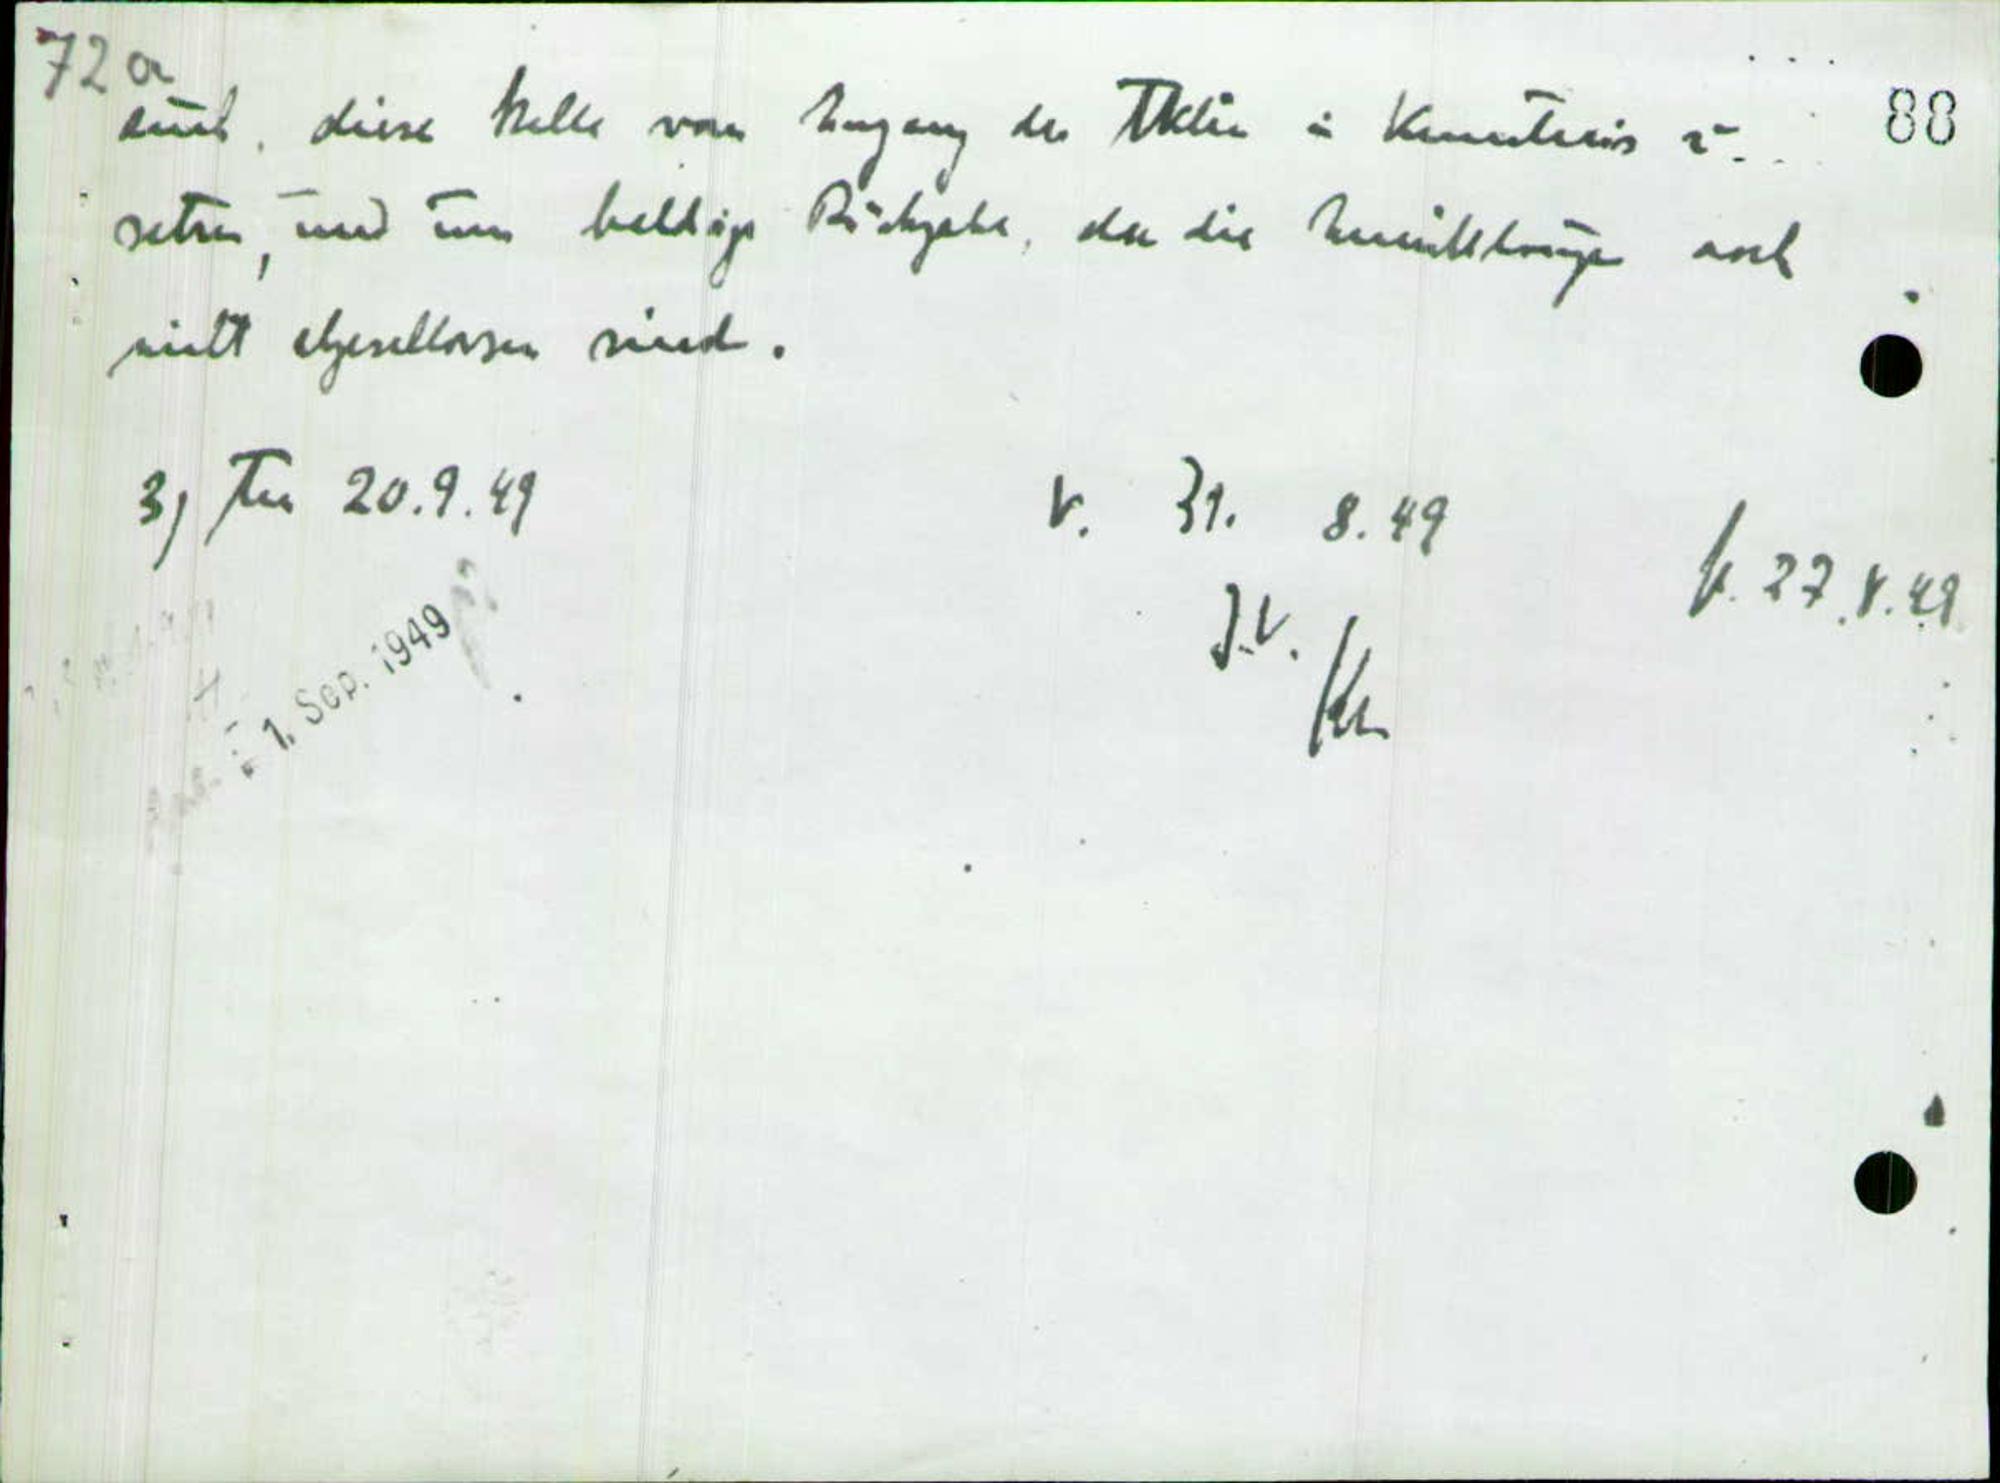 72a
88
auch, diese Stelle vom Eingang der Akten in Kenntnis zu
setzen, und um baldige Rückgabe, da die Ermittlungen noch
nicht abgeschlossen sind.
3) 20.9.49
V. 31. 8.49
27.8.49
J.V.
1. Sep. 1949